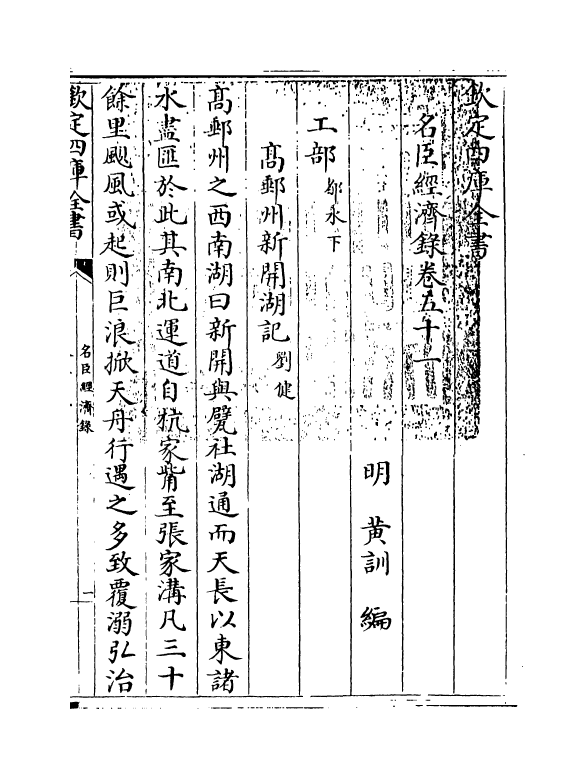 欽定四庫全書
名臣經濟錄卷五十一
明 黃訓 編
工部 都水下
高郵州新開湖記 劉健
高郵州之西南湖曰新開與甓社湖通而天長以東諸
水盡匯於此其南北運道自杭家觜至張家溝凡三十
餘里颶風或起則巨浪掀天舟行遇之多致覆溺弘治
欽定四庫全書
名臣經濟錄
一